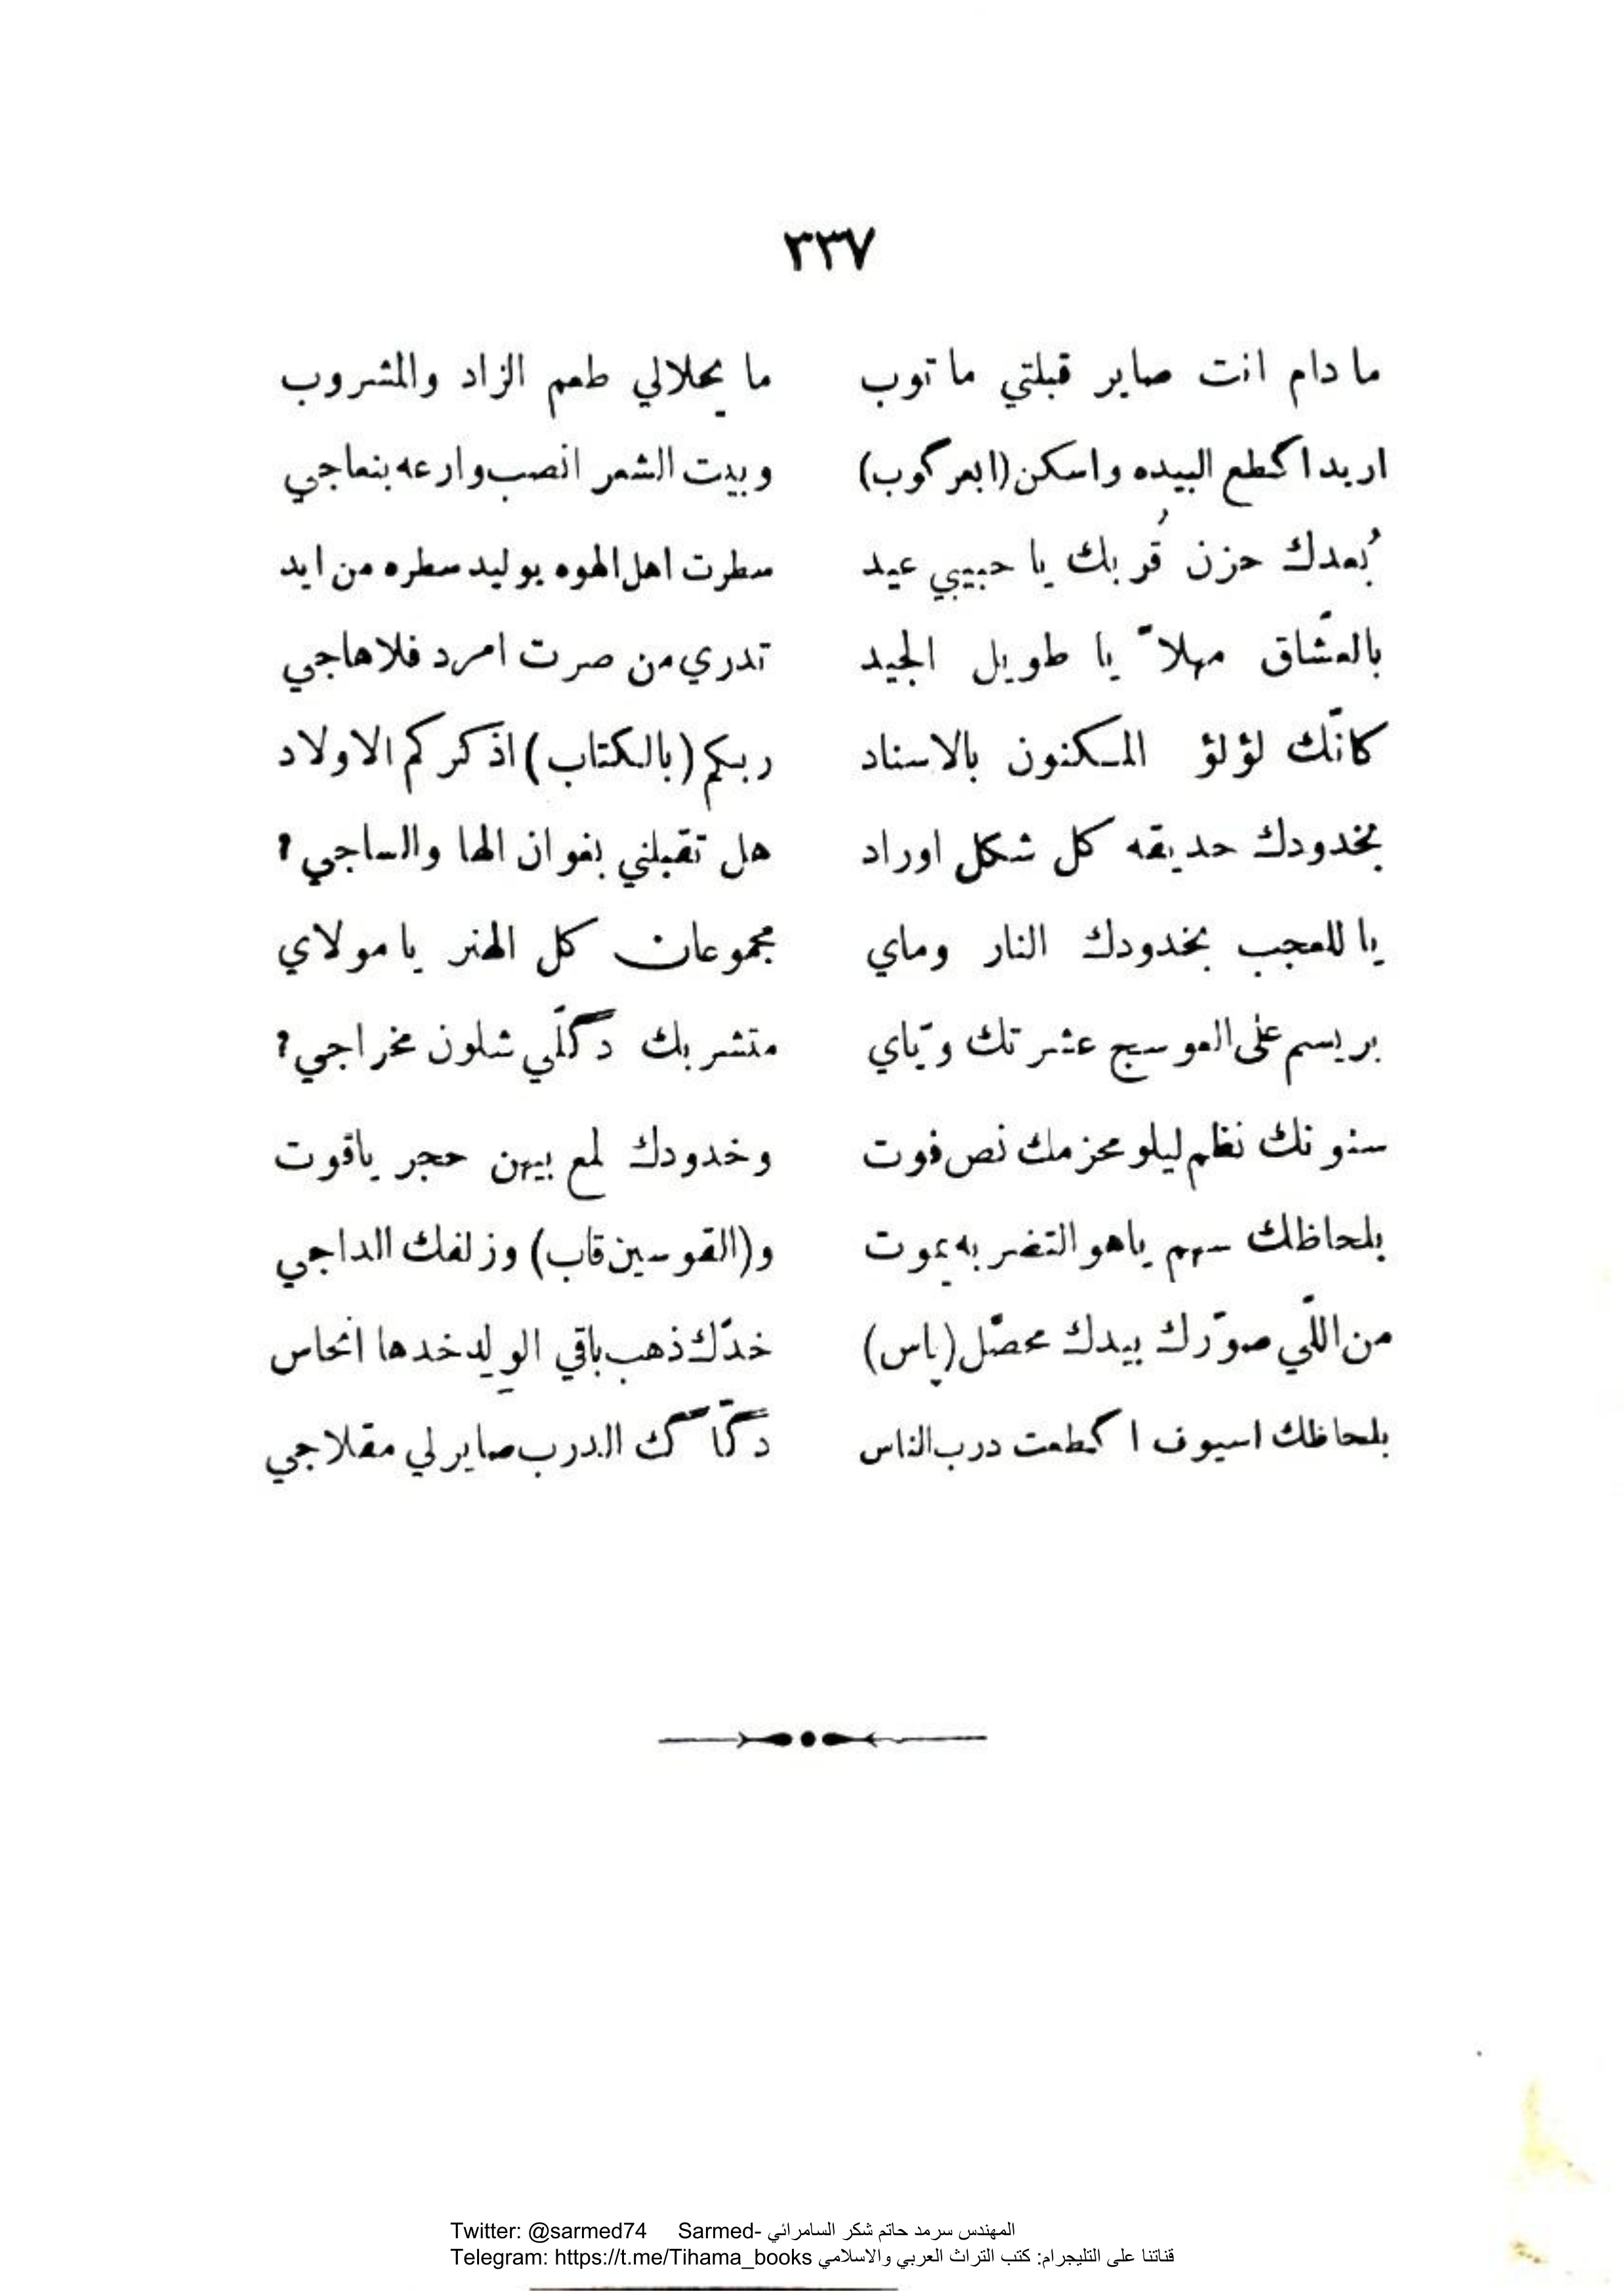 ٣٣٧
ما دام انت صاير قبلتي ما توب ما يحلالي طعم الزاد والمشروب
اريد اگطع البيده واسكن (ابعرگوب) وبيت الشعر انصب وارعه بنعاجي
بُعدك حزن قُربك يا حبيبي عيد سطرت اهل الهوه يوليد سطره من ايد
بالعشّاق مهلاً يا طويل الجيد تدري من صرت امرد فلا هاجي
كانّك لؤلؤ المكنون بالاسناد ربكم (بالكتاب) اذكركم الاولاد
بخدودك حديقه كل شكل اوراد هل تقبلني بغوان الها والساجي ؟
يا للعجب بخدودك النار وماي مجموعات كل الهنر يا مولاي
بريسم على العوسج عشرتك ويّاي متشربك دگلّي شلون مخراجي ؟
سنونك نظم ليلو محزمك نص فوت وخدودك لمع بيهن حجر ياقوت
بلحاظك سهم ياهو التضربه يموت و(القوسين قاب) وزلفك الداجي
من اللّي صوّرك بيدك محصّل (پاس) خدّك ذهب باقي الولِد خدها انحاس
بلحاظك اسيوف اگطعت درب الناس دگّاگ الدرب صاير لي مقلاجي
Twitter: @sarmed74 Sarmed- المهندس سرمد حاتم شكر السامرائي
Telegram: https://t.me/Tihama_books قناتنا على التليجرام: كتب التراث العربي والاسلامي